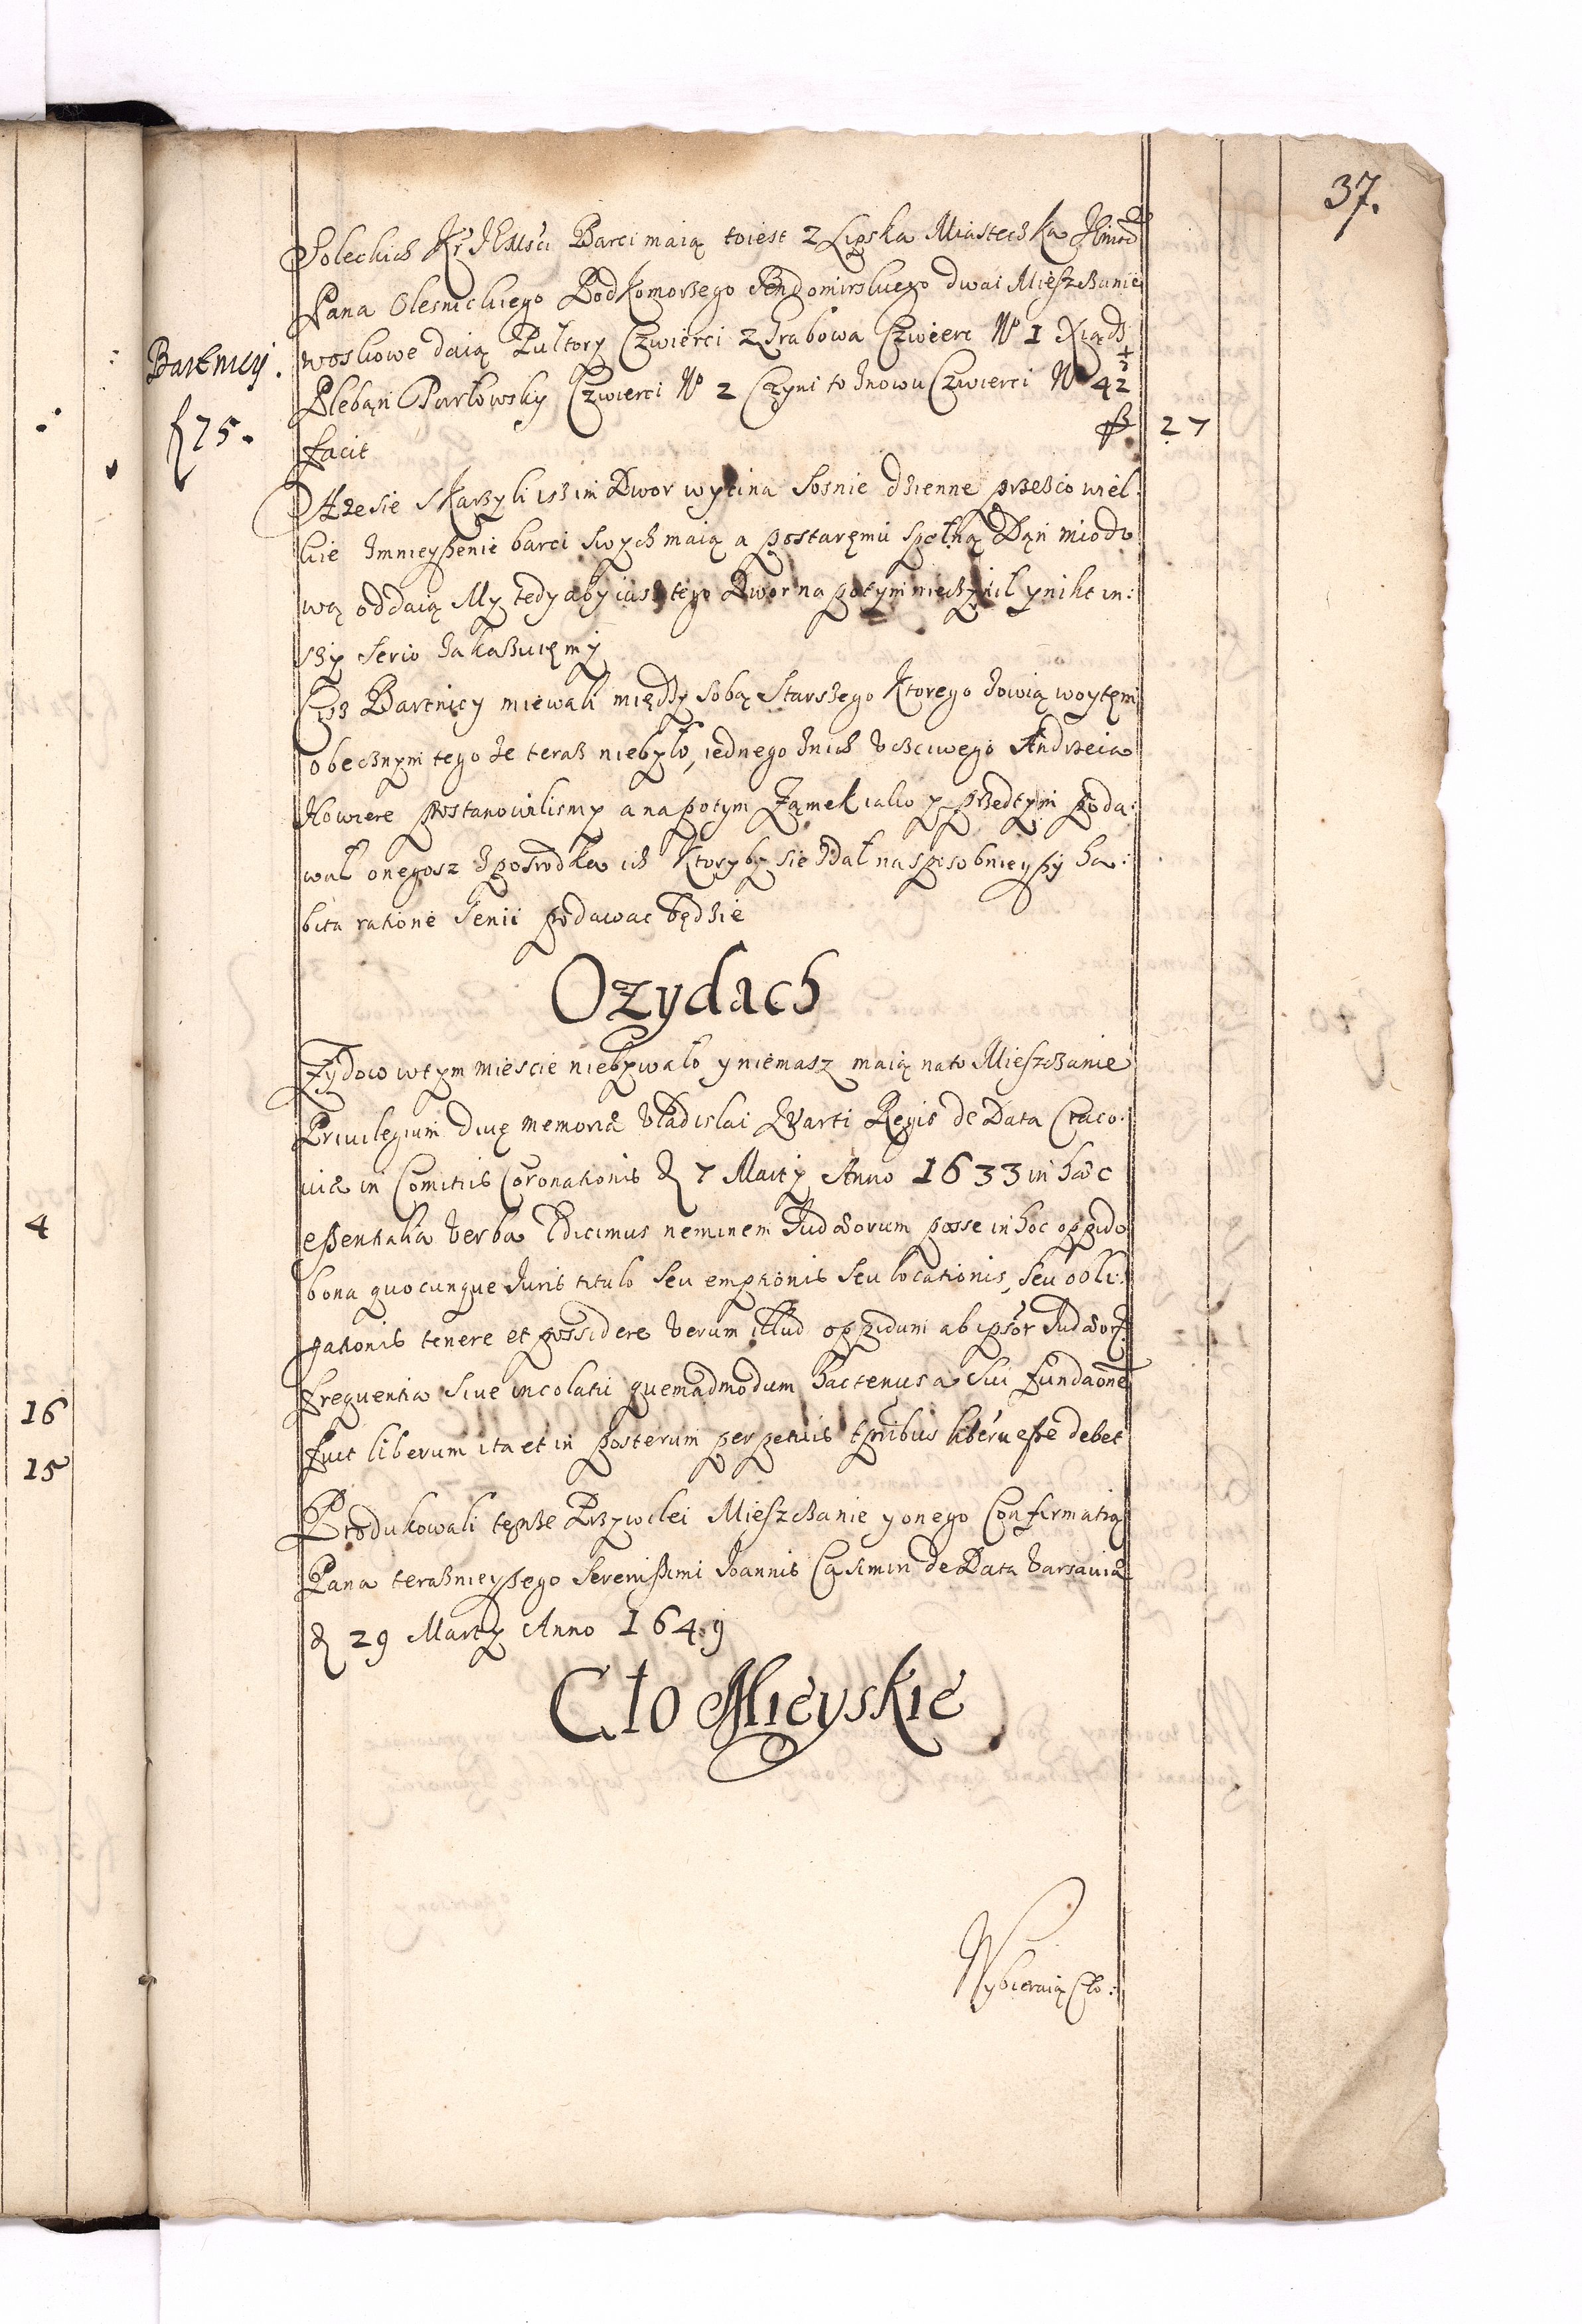 37.
Soleckich Kr JEMści Barci maią toiest z Lipska Miasteczka Jeimoc
Pana Olesnickiego Podkomorzego Sendomirskiego dwai Mieszczanie
woskowe daią Pułtory Czwierci z Grabowa Czwierc Nº 1 Xiądz
Plebąn Pawłowsky Czwierci Nº 2 Czyni to znowu Czwierci Nº 4 1/2
facit
27
Barthnicy.
f 75.
A że sie skarzyli isz im Dwor wycina Sosnie dzienne przezco wiel:
kie zmnieyszenie barci swych maią a postaręmu spełną Dąn miodo
wą oddaią My tedy aby iusz tego Dwor na potym nieczynił y nikt in:
szy serio zakazuięmy
Isz Bartnicy miewali między sobą Starszego ktorego zowią woytęm
obecznym tego że teraz niebyło, iednego znich uczciwego Andrzeia
Kowere postanowilismy a napotym Zamek iako y przedtym poda:
wał onegosz zposrodka ich ktory by sie zdał nasposobnieyszy ha:
bita ratione Senii podawac będzie
O Zydach
Zydow wtym miescie niebywało y niemasz maią nato Mieszczanie
Priuilegium diuę memoriæ Vladislai Quarti Regis de Data Craco:
uiæ in Comitiis Coronationis d 7 Marty Anno 1633 in hæc
essentialia verba Edicimus neminem Judæorum posse in hoc oppido
bona quocunque Juris titulo seu emptionis seu locationis, seu obli:
gationis tenere et possidere verum illud oppidum ab ipsor Judæor
frequentia siue incolatu quemadmodum hactenus a sui fundaone
fuit liberum ita et in posterum perpetuis tpribus liberu esse debet
Produkowali tęnze Przywilei Mieszczanie y onego Confirmatią
Pana terazнieyszego Serenissimi Joannis Casimiri de Data Varsauiæ
d 29 Marty Anno 1649
Cło Mieyskie
Wybieraią Cło:
4
16
15